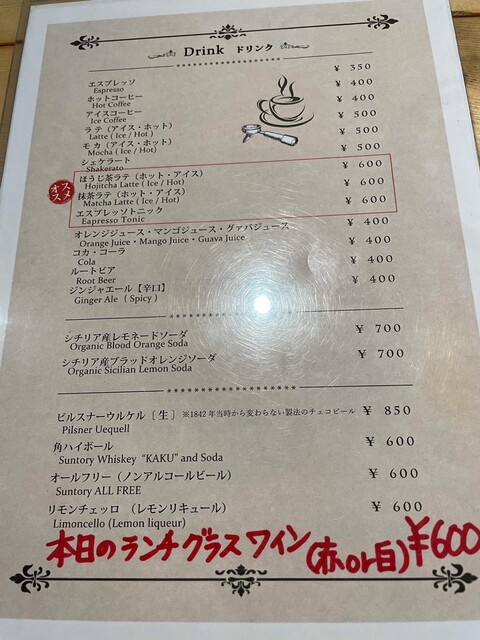 Drink ドリンク
エスプレッソ ¥ 350
Espresso
ホットコーヒー ¥ 400
Hot Coffee
アイスコーヒー ¥ 400
Ice Coffee
ラテ（アイス・ホット） ¥ 500
Latte ( Ice / Hot )
モカ（アイス・ホット） ¥ 500
Mocha ( Ice / Hot)
シェケラート ¥ 500
Shakerato
オススメ
ほうじ茶ラテ（ホット・アイス） ¥ 600
Hojitcha Latte ( Ice / Hot)
抹茶ラテ（ホット・アイス） ¥ 600
Matcha Latte ( Ice / Hot)
エスプレッソトニック ¥ 600
Eapresso Tonic
オレンジジュース・マンゴジュース・グァバジュース ¥ 400
Orange Juice・Mango Juice・Guava Juice
コカ・コーラ ¥ 400
Cola
ルートビア ¥ 400
Root Beer
ジンジャエール【辛口】 ¥ 400
Ginger Ale （ Spicy ）
********************
シチリア産レモネードソーダ ¥ 700
Organic Blood Orange Soda
シチリア産ブラッドオレンジソーダ ¥ 700
Organic Sicilian Lemon Soda
********************
ピルスナーウルケル〔 生 〕 ※1842 年当時から変わらない製法のチェコビール ¥ 850
Pilsner Uequell
角ハイボール ¥ 600
Suntory Whiskey “KAKU” and Soda
オールフリー（ノンアルコールビール） ¥ 600
Suntory ALL FREE
リモンチェッロ （レモンリキュール） ¥ 600
Limoncello (Lemon liqueur)
本日のランチグラスワイン(赤or白)¥600